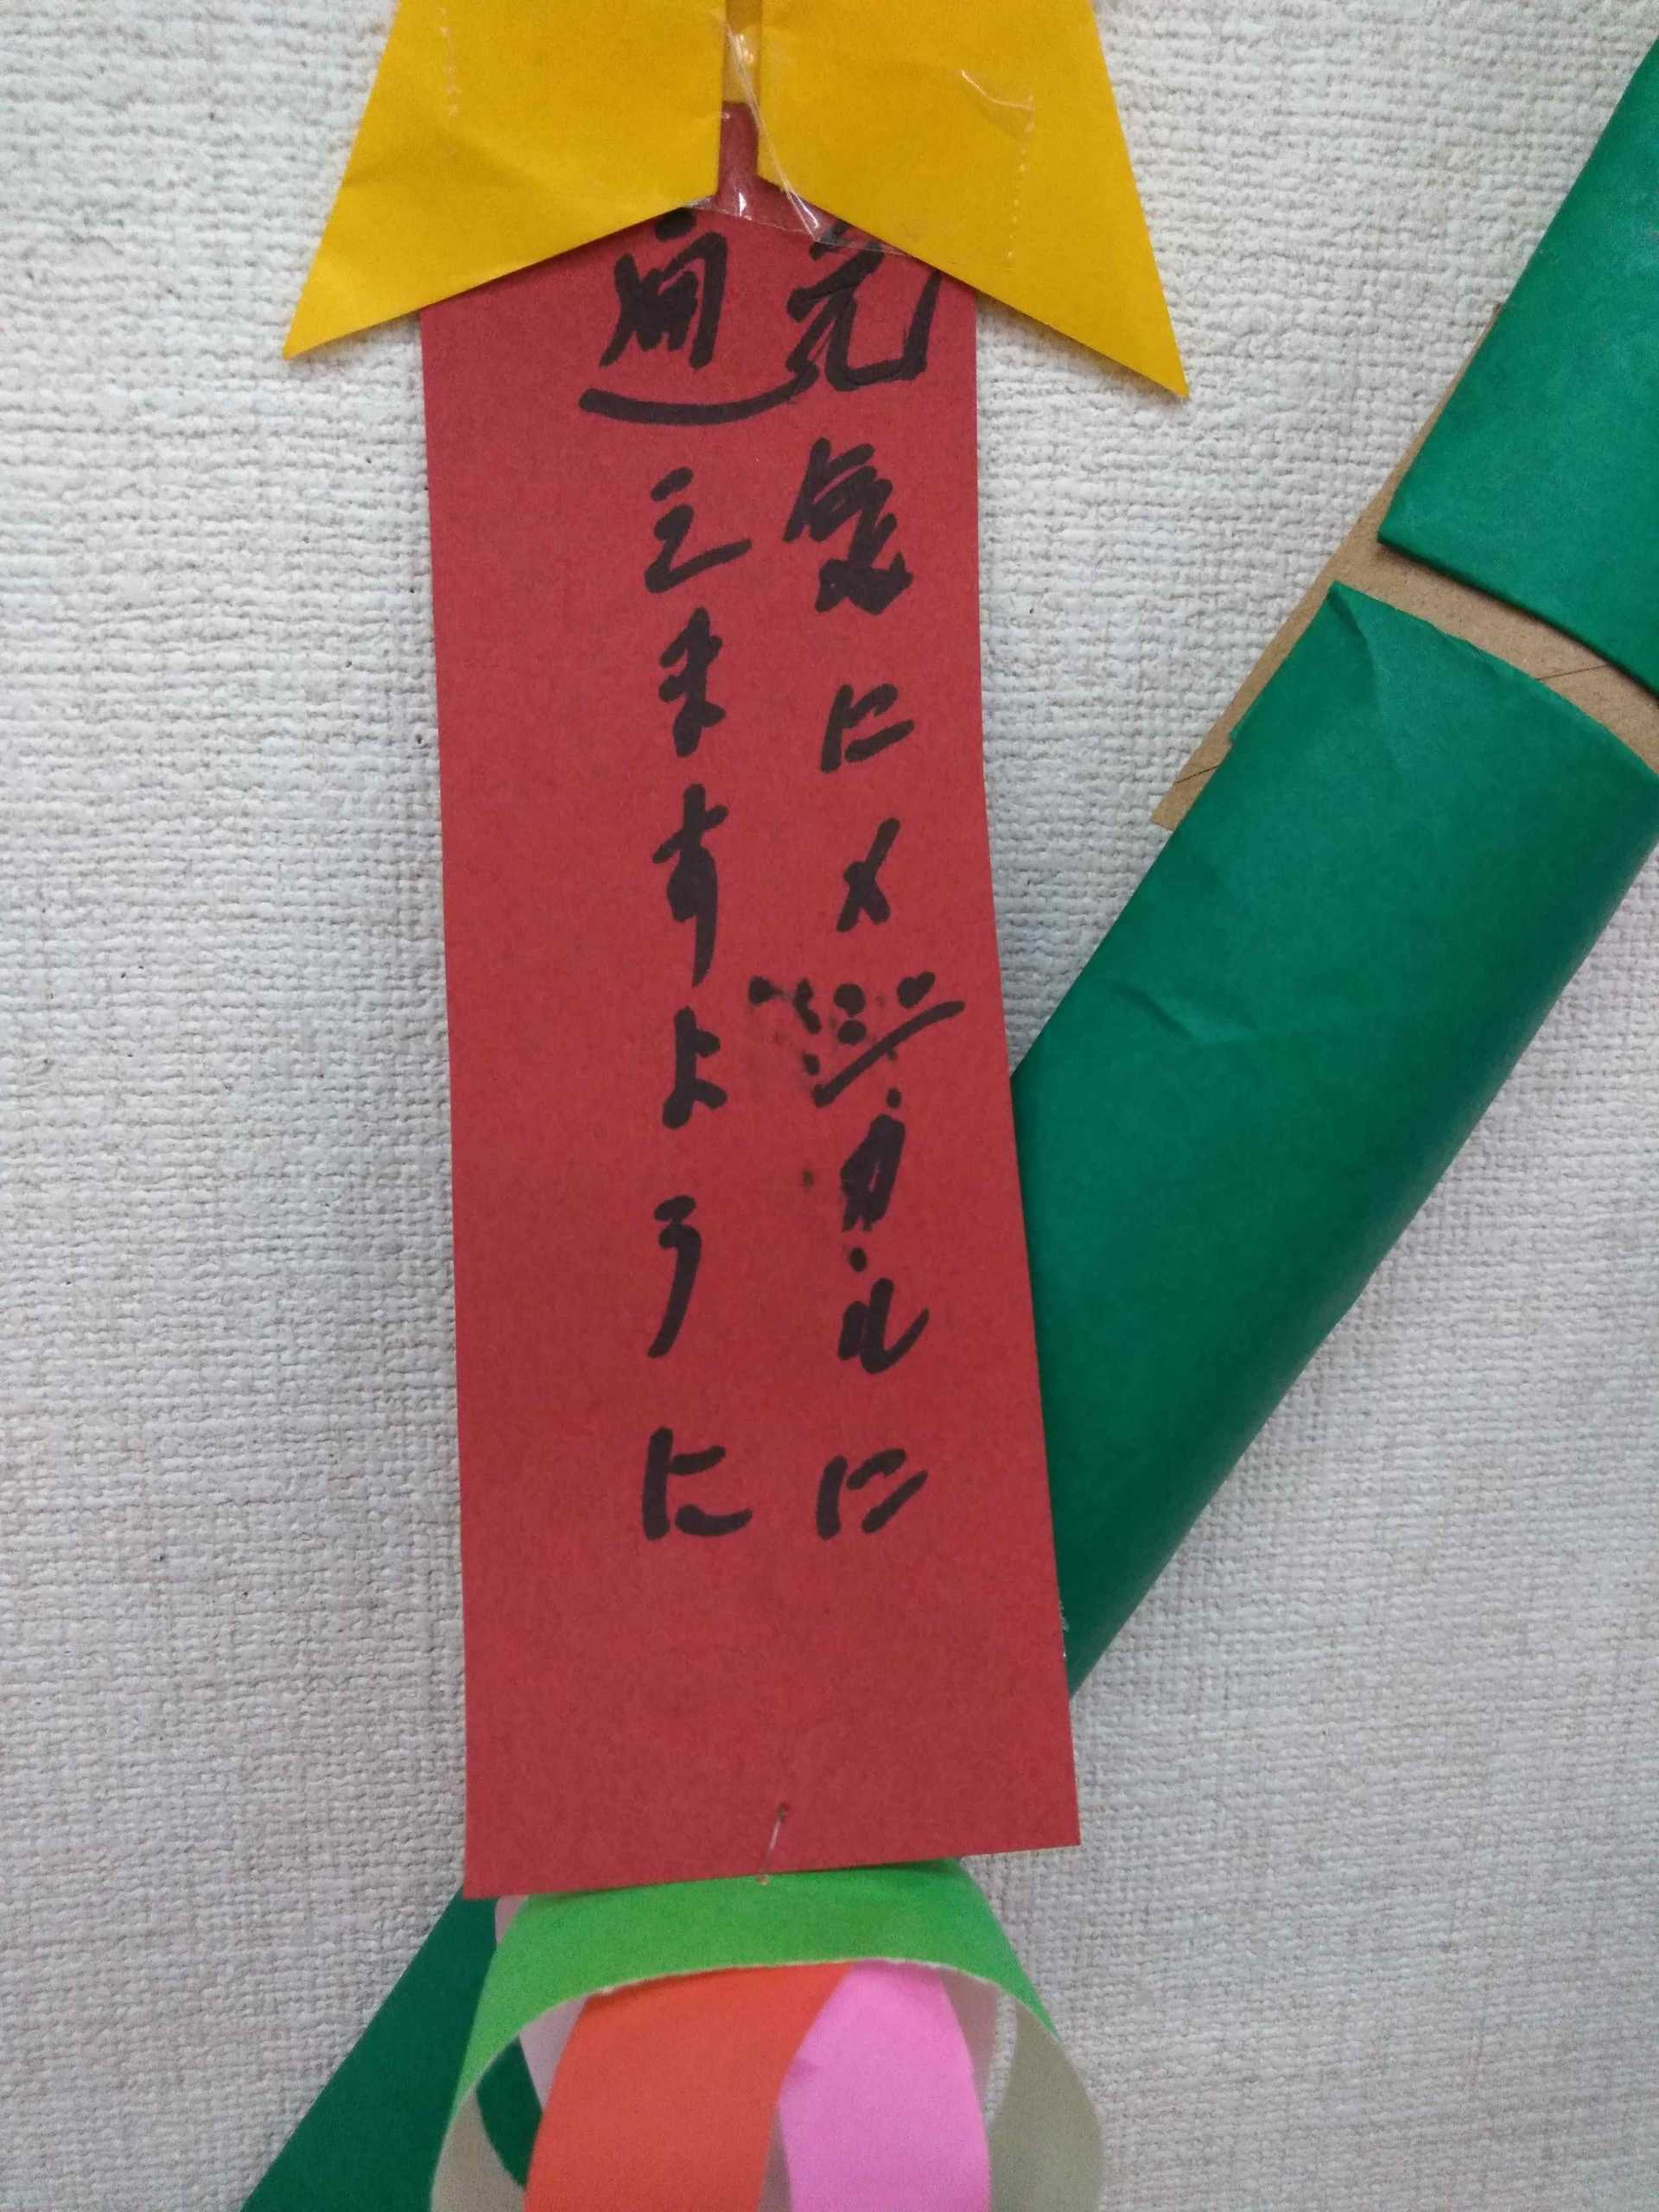 元気にメジカルに
通えますように